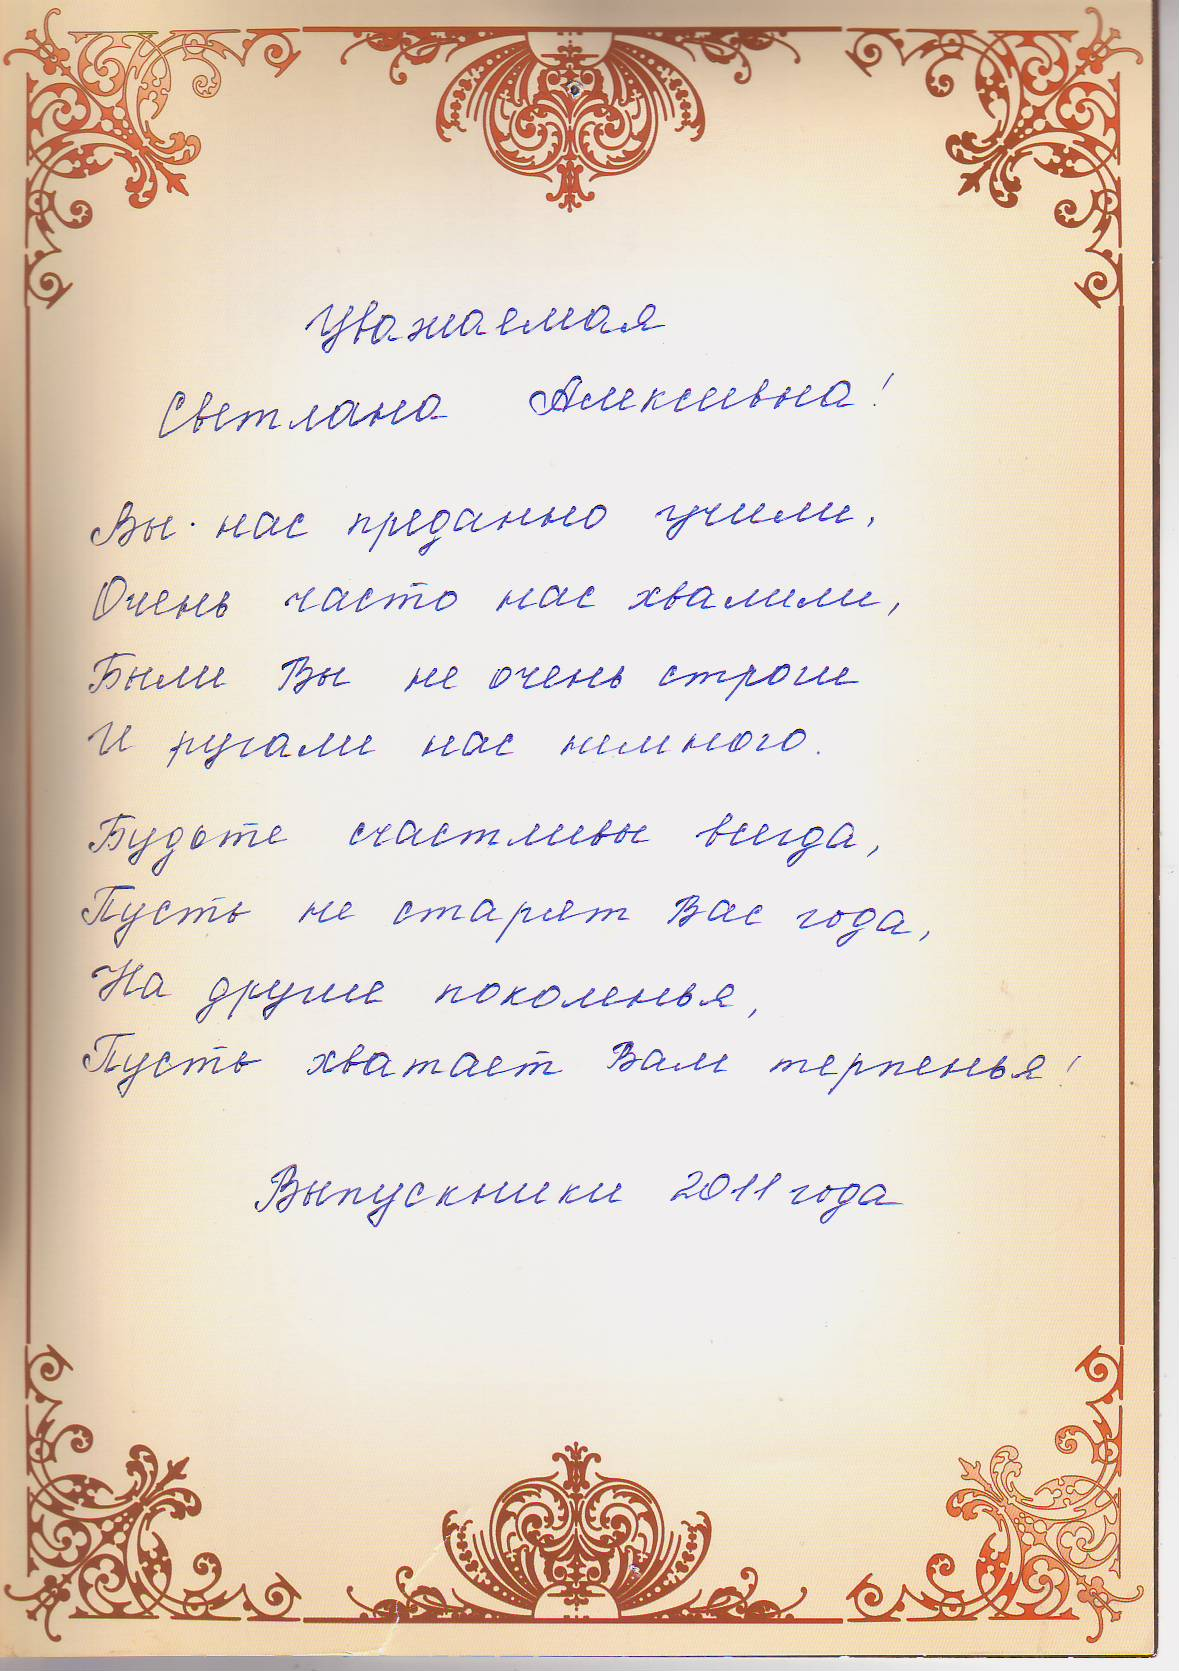 Уважаемая
Светлана Алексеевна!
Вы нас преданно учили,
Очень часто нас хвалили,
Были Вы не очень строги
И ругали нас немного.
Будьте счастливы всегда,
Пусть не старят Вас года,
На другие поколенья,
Пусть хватает Вам терпенья!
Выпускники 2011 года